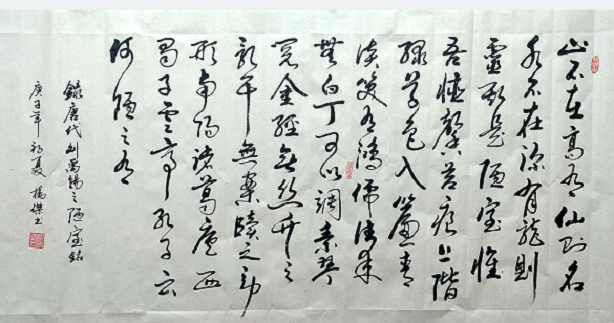 山不在高有仙則名
水不在深有龍則
靈斯是陋室惟
吾德馨苔痕上階
綠草色入簾青
談笑有鴻儒往來
無白丁可以調素琴
閱金經無絲竹之
亂耳無案牘之勞
形南陽諸葛廬西
蜀子雲亭孔子云
何陋之有
錄唐代劉禹錫之陋室銘
庚子年初夏楊傑書